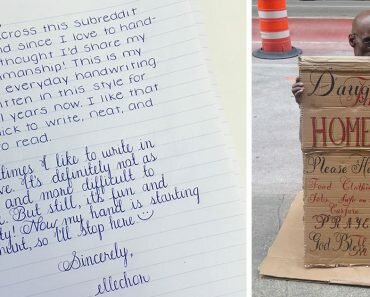 cross this subreddit
nd since I love to hand-
thought I'd share my
manship! This is my
everyday handwriting.
itten in this style for
l years now. I like that
uick to write, neat, and
o read.
times, I like to write in
ve. It's definitely not as
and more difficult to
. But still, it's fun and
ty! Now my hand is starting
so I'll stop here
Sincerely,
ellechan
Daug
HOME
Please He
Food Cloth
Jobs Info on
PRAYE
God Bless